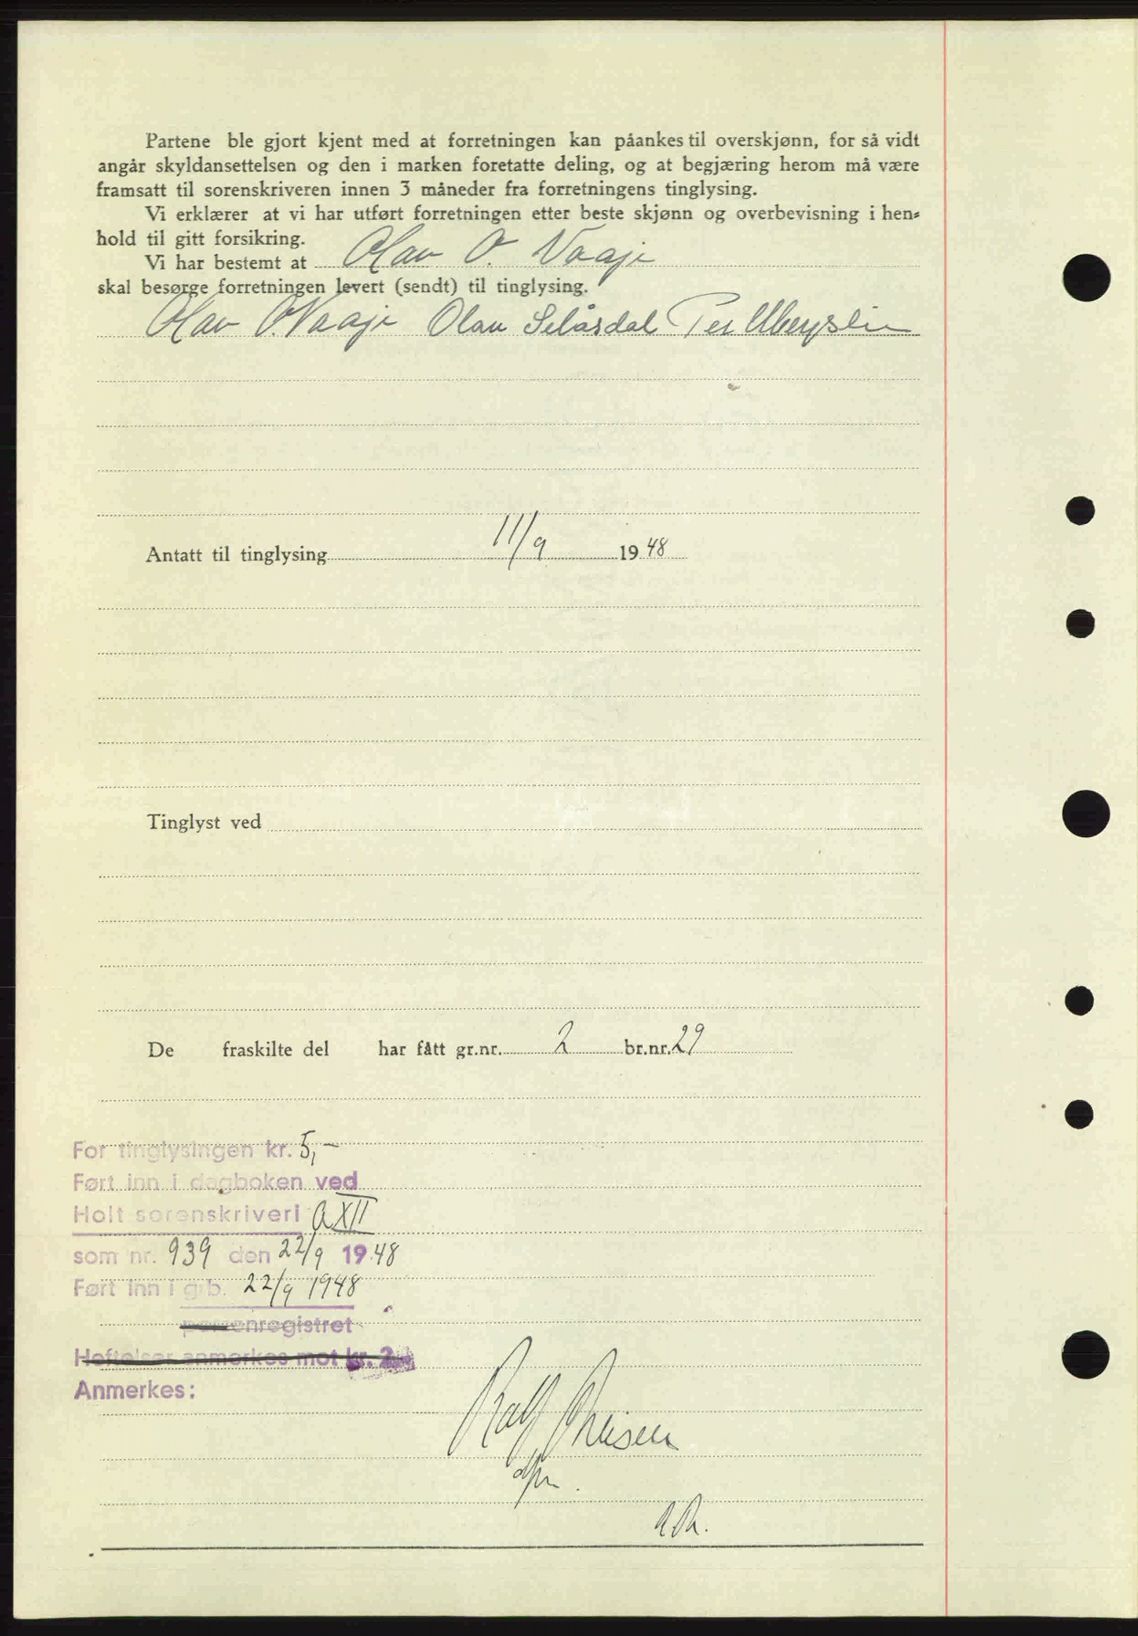 Partene ble gjort kjent med at forretningen kan påankes til overskjønn, for så vidt
angår skyldansettelsen og den i marken foretatte deling, og at begjæring herom må være
framsatt til sorenskriveren innen 3 måneder fra forretningens tinglysing.
Vi erklærer at vi har utført forretningen etter beste skjønn og overbevisning i hen-
hold til gitt forsikring.
Vi har bestemt at Olav O. Vaaje
skal besørge forretningen levert (sendt) til tinglysing.
Olav O. Vaaje Olav Selåsdal Per
Antatt til tinglysing 11/9 1948
Tinglyst ved
De fraskilte del har fått gr.nr. 2 br.nr. 29
For tinglysingen kr. 5,-
Ført inn i dagboken ved
Holt sorenskriveri a XII
som nr. 939 den 22/9 1948
Ført inn i g.b. 22/9 1948
panteregistret
Heftelser anmerkes mot kr. 2
Anmerkes:
Ralf